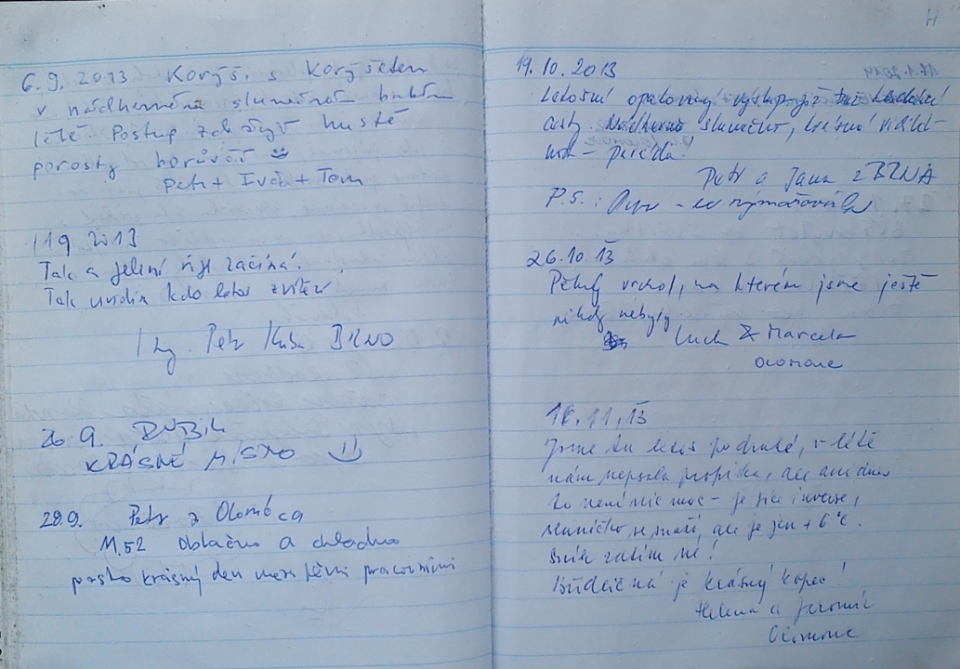 6.9. 2013 Korýši s Koryšetem
v nádherném slunečném
létě Postup ztěžují husté
porosty borůvčí
Petr + Ivča + Tom
119 2013
Tak a jelení říje začíná.
Tak uvidím kdo letos
Ing. Petr Kuba BRNO
26 9.
KRÁSNÉ MÍSTO
29.9. Petr z Olomouca
M.52 Oblačno a chladno
krásný den mezi těmi pracovními
19. 10. 2013
Letošní opakovaný výstup již
Nádherné slunečno, krásná viditel-
nost – paráda.
Petr a Jana z BRNA
P.S.:
26.10 13
Pěkný vrchol, na kterém jsme ještě
nikdy nebyly
& Marcela
OLOMOUC
16.11.13
Jsme tu letos podruhé, v létě
nám nepsala propiska, ale ani dnes
to není nic moc – je sice inverze,
sluníčko se snaží, ale je jen +6°C.
Sníh zatím ne!
Břidličná je krásný kopec!
Helena a Jaromír
Olomouc